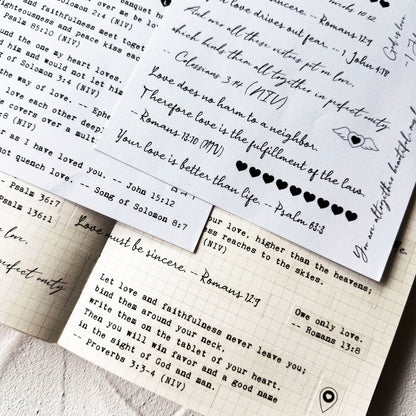 banquet h
and faithfulness meet together
righteousness and peace kiss each
Psalm 85:10 (NIV)
ound the one my heart loves.
him and would not let him
Solomon 3:4 (NIV)
the way of love. -- Ephe
love each other deepl
covers over a mult
4:8 (NIV)
r as I have loved you. -- John 15:12
not quench love. -- Song of Solomon 8:7
10:12
sincere. -- Romans 12:9
love drives out fear. -- 1 John 4:18
And over all these virtues put on love,
which binds them all together in perfect unity.
-- Colossians 3:14 (NIV)
Love does no harm to a neighbor.
Therefore love is the fulfillment of the law.
-- Romans 13:10 (NIV)
Your love is better than life. -- Psalm 63:3
God is love.
You are altogether beautiful
Psalm 36:7
136:1
love,
perfect unity
Love must be sincere. -- Romans 12:9
our love, higher than the heavens;
ss reaches to the skies.
(NIV)
Let love and faithfulness never leave you;
bind them around your neck,
write them on the tablet of your heart.
Then you will win favor and a good name
in the sight of God and man.
-- Proverbs 3:3-4 (NIV)
Owe only love.
-- Romans 13:8